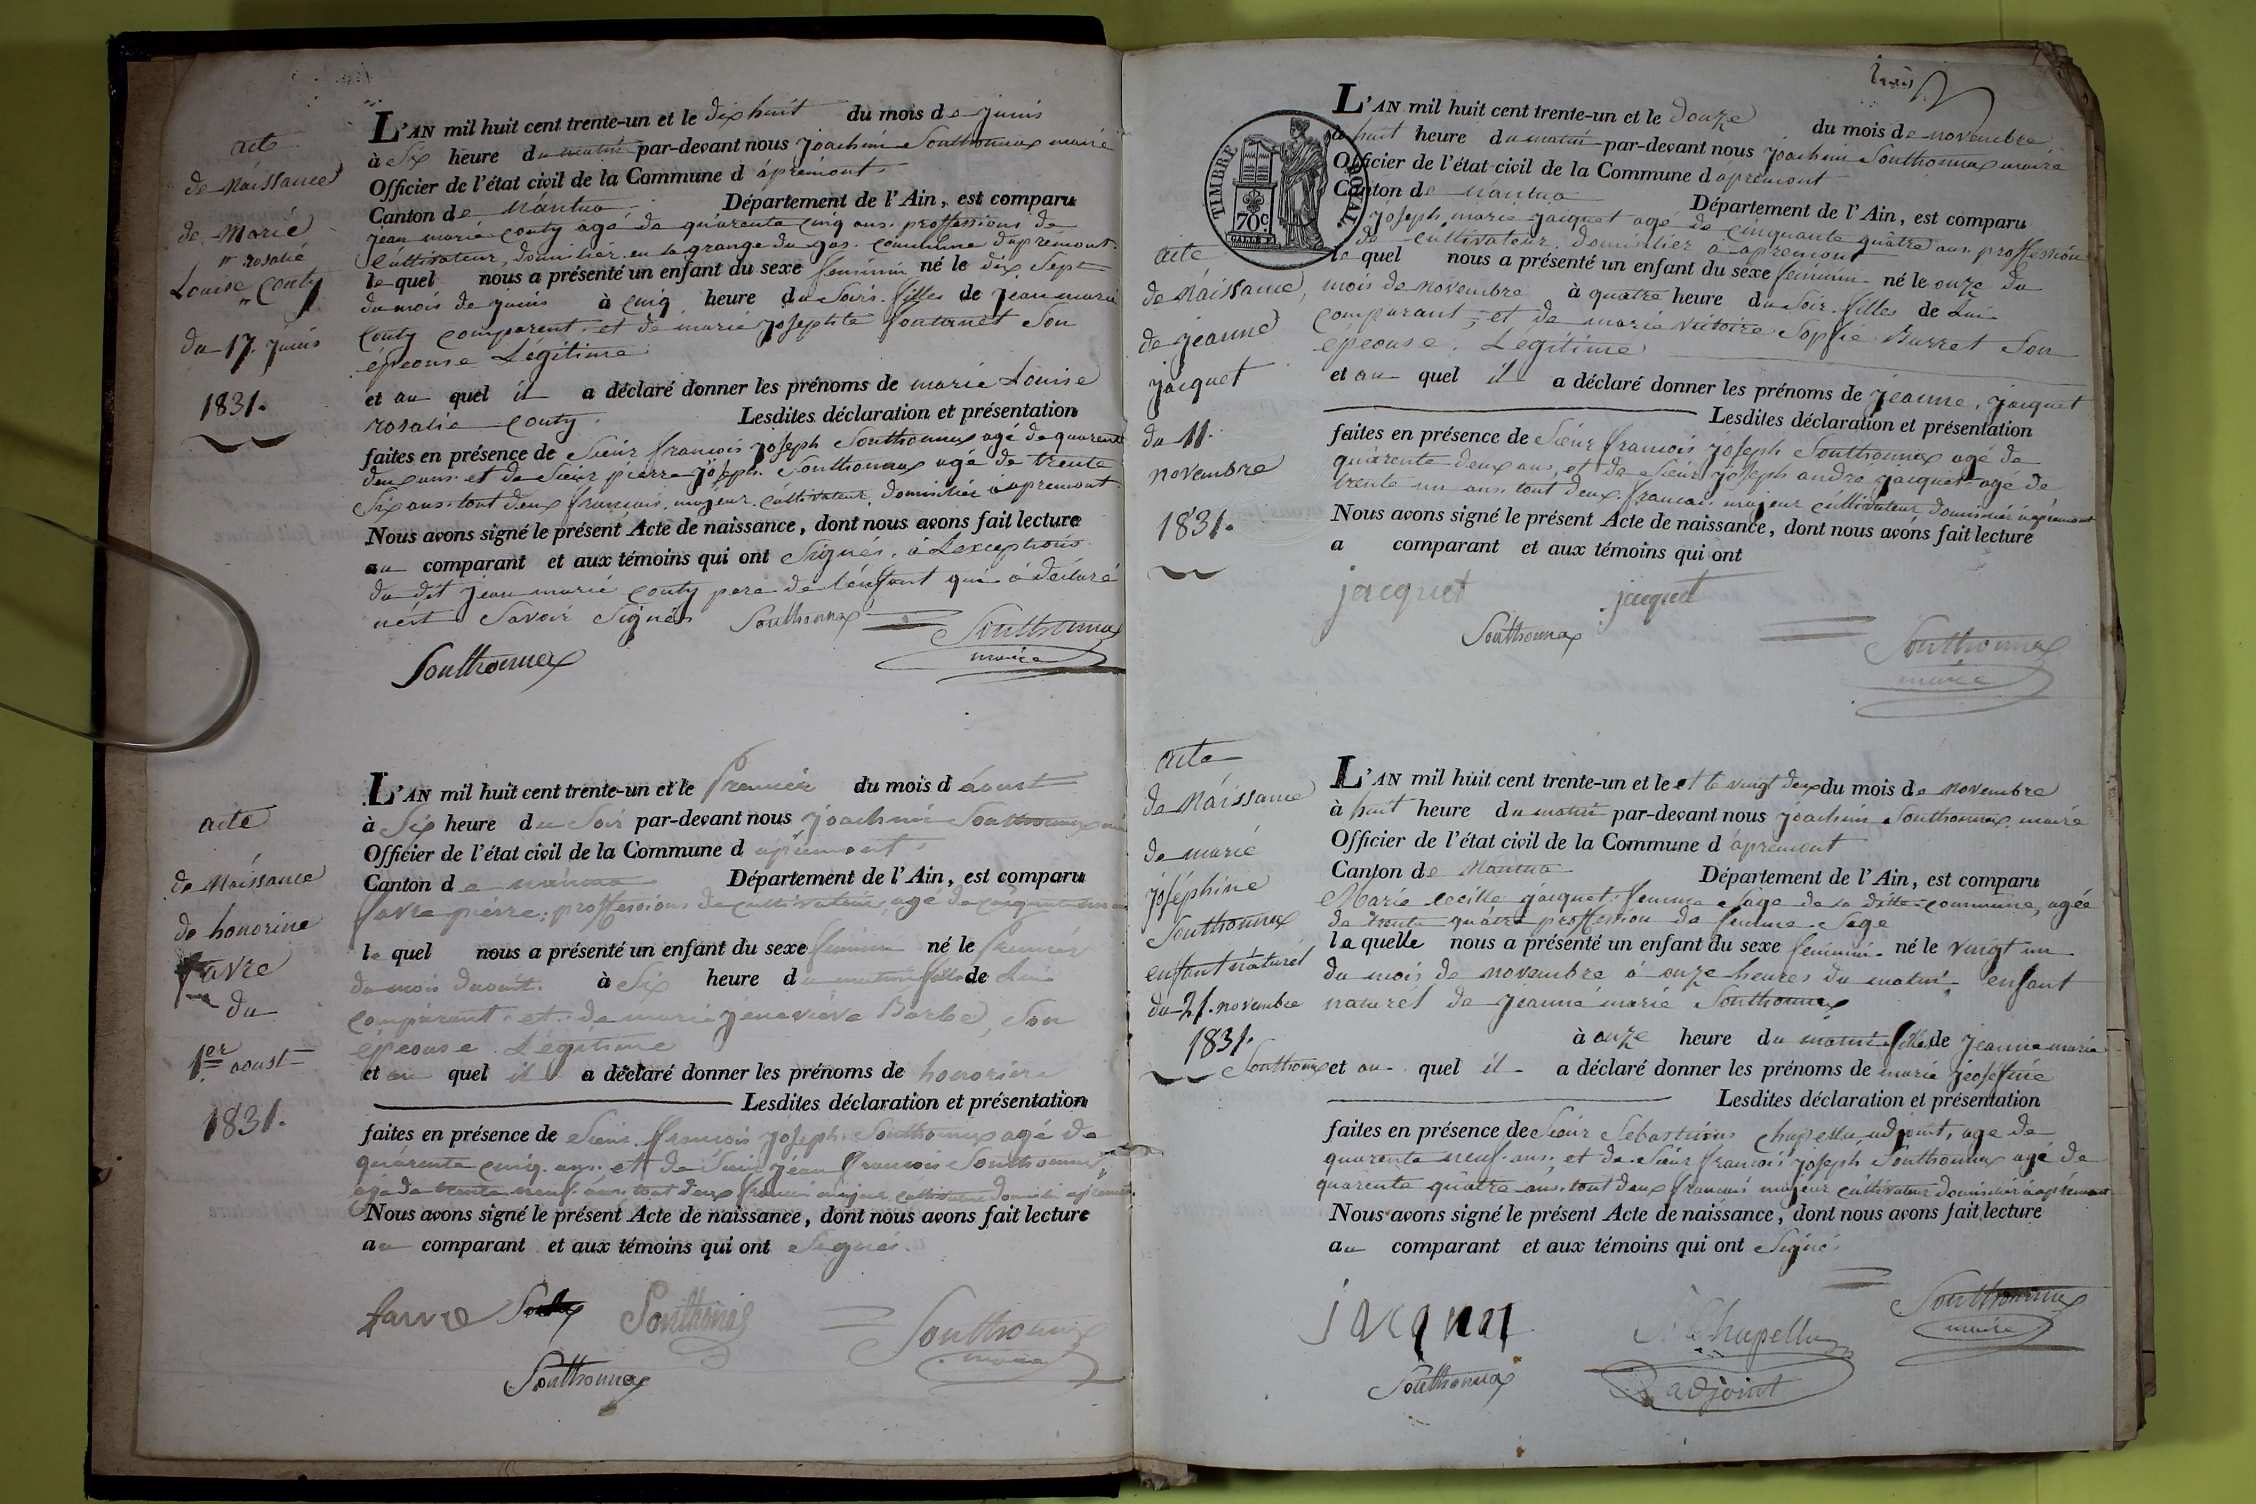 acte
de Náissance
de Marie
" rosalie
Louise Couty
"
du 17. juins
1831.
L'AN mil huit cent trente-un et le dix huit du mois de juins
à Six heure du matin par-devant nous joachim Southonnax maire
Officier de l'état civil de la Commune d'ápremont
Canton de Nantua Département de l'Ain, est comparu
jean marie Couty agé de quarente cinq ans. proffessions de
Cultivateur, domicilier en la grange du gas. Commune d'apremont
le quel nous a présenté un enfant du sexe feminin né le dix Sept
du mois de juins à Cinq heure du Soir. filles de jean marie
Couty comparent. et de marie josephte fournet Son
épeouse Légitime
et au quel il a déclaré donner les prénoms de marie Louise
rosalie Couty. Lesdites déclaration et présentation
faites en présence de Sieur francois joseph Southonnax agé de quarente
deux ans. et de Sieur pierre joseph. Southonnax agé de trente
Six ans. tout deux français. majeur. Cultivateur. domicilier á apremont
Nous avons signé le présent Acte de naissance, dont nous avons fait lecture
au comparant et aux témoins qui ont Signés. à Lexceptions
du dit jean marie Couty pere de L'enfant qui à déclaré
nést Savoir Signés Southonnax Southonnax
maire
Southonnax
acte
de Náissance
de honorine
favre
du
1er aoust
1831.
L'AN mil huit cent trente-un et le Premier du mois d'áoust
à Six heure du Soir par-devant nous joachim Southonnax
Officier de l'état civil de la Commune d'apremont
Canton de nantua Département de l'Ain, est comparu
favre pierre; proffessions de cultivateur, agé de
le quel nous a présenté un enfant du sexe feminin né le premier
du mois d'aoust. à Six heure du matin fille de Lui
Comparant. et. de marie jeneviève Barbe, Son
épeouse Légitime
et au quel il a déclaré donner les prénoms de honorine
Lesdites déclaration et présentation
faites en présence de Sieur francois joseph Southonnax agé de
quárente cinq ans. et de Sieur jean francois Southonnax
agé de trente neuf ans. tout deux francais majeur cultivateur domicilier apremont
Nous avons signé le présent Acte de naissance, dont nous avons fait lecture
au comparant et aux témoins qui ont Signés.
favre Southonax Southonnax
maire
Southonnax
trois
TIMBRE ROYAL
70c
acte
de Náissance
de jeanne
jacquet
du 11.
novembre
1831.
L'AN mil huit cent trente-un et le douze du mois de novembre
à huit heure du matin par-devant nous joachim Southonnax maire
Officier de l'état civil de la Commune d'ápremont
Canton de Nantua Département de l'Ain, est comparu
joseph marie jacquet agé de cinquante quâtre ans. proffession
de cultivateur. domicilier à apremont
le quel nous a présenté un enfant du sexe feminin né le onze du
mois de novembre à quatre heure du Soir. filles de Lui
Comparant, et de marie victoire Sophie Burret Son
épeouse. Légitime
et au quel il a déclaré donner les prénoms de jeanne, jacquet
Lesdites déclaration et présentation
faites en présence de Sieur francois joseph Southonnax agé de
quárente deux ans, et de Sieur joseph andré jacquet agé de
trente un ans. tout deux. francais. majeur cultivateur domicilier à apremont
Nous avons signé le présent Acte de naissance, dont nous avons fait lecture
a comparant et aux témoins qui ont
jacquet jacquet
Southonnax Southonnax
maire
acte
de Náissance
de marie
joséphine
Southonnax
enfant náturel
du 21. novembre
1831.
Southonnax
L'AN mil huit cent trente-un et le et le vingt deux du mois de Novembre
à huit heure du matin par-devant nous joachim Southonnax. maire
Officier de l'état civil de la Commune d'ápremont
Canton de Nantua Département de l'Ain, est comparu
Marie Cecille jacquet. femme Sage de la ditte commune, agée
de trente quátre proffession de femme. Sage
la quelle nous a présenté un enfant du sexe feminin né le vingt un
du mois de novembre à onze heures du matin enfant
naturel de jeanne marie Southonnax
à onze heure du matin filles de jeanne marie
et au quel il a déclaré donner les prénoms de marie josefine
Lesdites déclaration et présentation
faites en présence de Sieur Sebastiens Chapellu adjoint, agé de
quárente neuf. ans, et de Sieur francois joseph Southonnax agé de
quárente quâtre ans. tout deux francais majeur cultivateur domicilier à apremont
Nous avons signé le présent Acte de naissance, dont nous avons fait lecture
au comparant et aux témoins qui ont Signé.
jacquet Chapellu Southonnax
maire
Southonnax adjoint